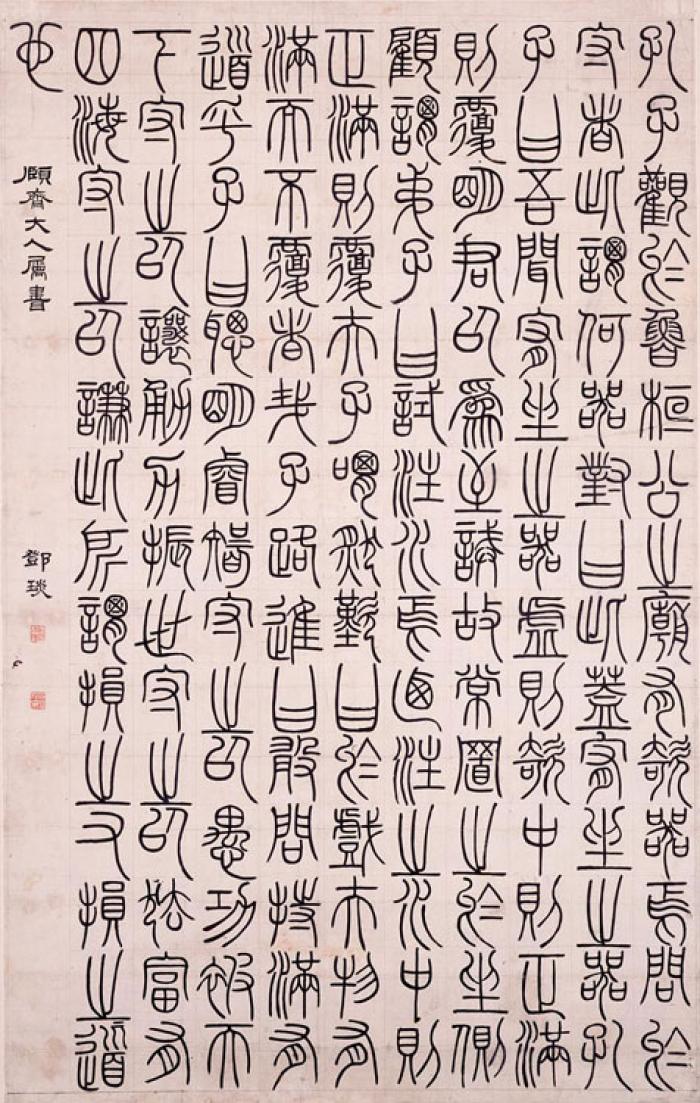 孔子觀於魯桓公之廟有欹器焉問於
守者此謂何器對曰此蓋宥坐之器孔
子曰吾聞宥坐之器虛則欹中則正滿
則覆明君以為至誡故常置之於坐側
顧謂弟子曰試注水焉乃注之水中則
正滿則覆夫子喟然歎曰於戲夫物有
滿而不覆者哉子路進曰敢問持滿有
道乎子曰聰明睿智守之以愚功被天
下守之以讓勇力振世守之以怯富有
四海守之以謙此所謂損之又損之道
也
頤齊大人屬書
鄧琰